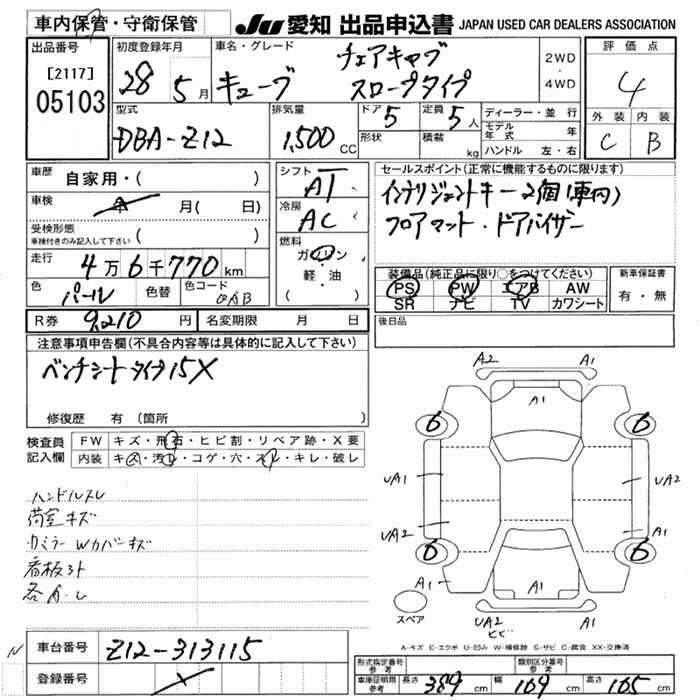 車内保管・守衛保管
JU 愛知 出品申込書 JAPAN USED CAR DEALERS ASSOCIATION
出品番号
[2117]
05103
初度登録年月
28 5月
車名・グレード
キューブ
チェアキャブ
スロープタイプ
2WD
・
4WD
評価点
4
外装 内装
C B
型式
DBA-Z12
排気量
1,500 CC
ドア 5
定員 5人
形状
積載 kg
ディーラー・並行
モデル年式 年
ハンドル 左・右
車歴 自家用・( )
車検 年 月( 日)
受検形態
車検付きのみ記入して下さい ( )
走行 4万6千770km
色 パール
色替
色コード QAB
シフト AT
冷房 AC
燃料 ガソリン
軽・油
( )
セールスポイント(正常に機能するものに限ります)
インテリジェントキー2個(車内)
フロアマット・ドアバイザー
装備品(純正品に限り○をつけてください)
PS PW エアB AW
SR ナビ TV カワシート
新車保証書
有・無
R券 9,210円
名変期限 月 日
後日品
注意事項申告欄(不具合内容等は具体的に記入して下さい)
ベンチシート タイプ 15X
修復歴 有(箇所 )
検査員
記入欄
FW キズ・飛石・ヒビ割・リペア跡・X要
内装 キズ・汚れ・コゲ・穴・スレ・キレ・破レ
ハンドルスレ
荷室キズ
カミラーWカバーキズ
看板ヌト
各A-U
A2 A1
A1
6 6
UA1 A1
UA2 A1
6 6
A1 A1
スペア
UA2 A1
ヒビ
A-キズ E-エクボ U-凹み W-補修跡 S-サビ C-腐食 XX-交換済
N
車台番号 Z12-313115
登録番号
形式指定番号
参考
類別区分番号
参考
車庫証明用
参考
長さ 389cm
幅 169cm
高さ 165cm